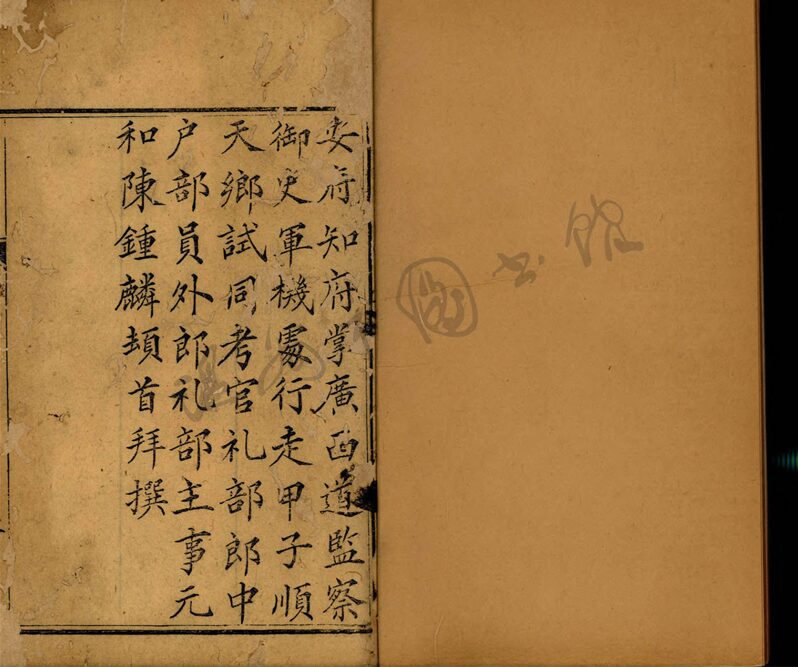 安府知府掌廣西道監察
御史軍機處行走甲子順
天鄉試同考官礼部郎中
户部員外郎礼部主事元
和陳鍾麟頓首拜撰
圖书馆